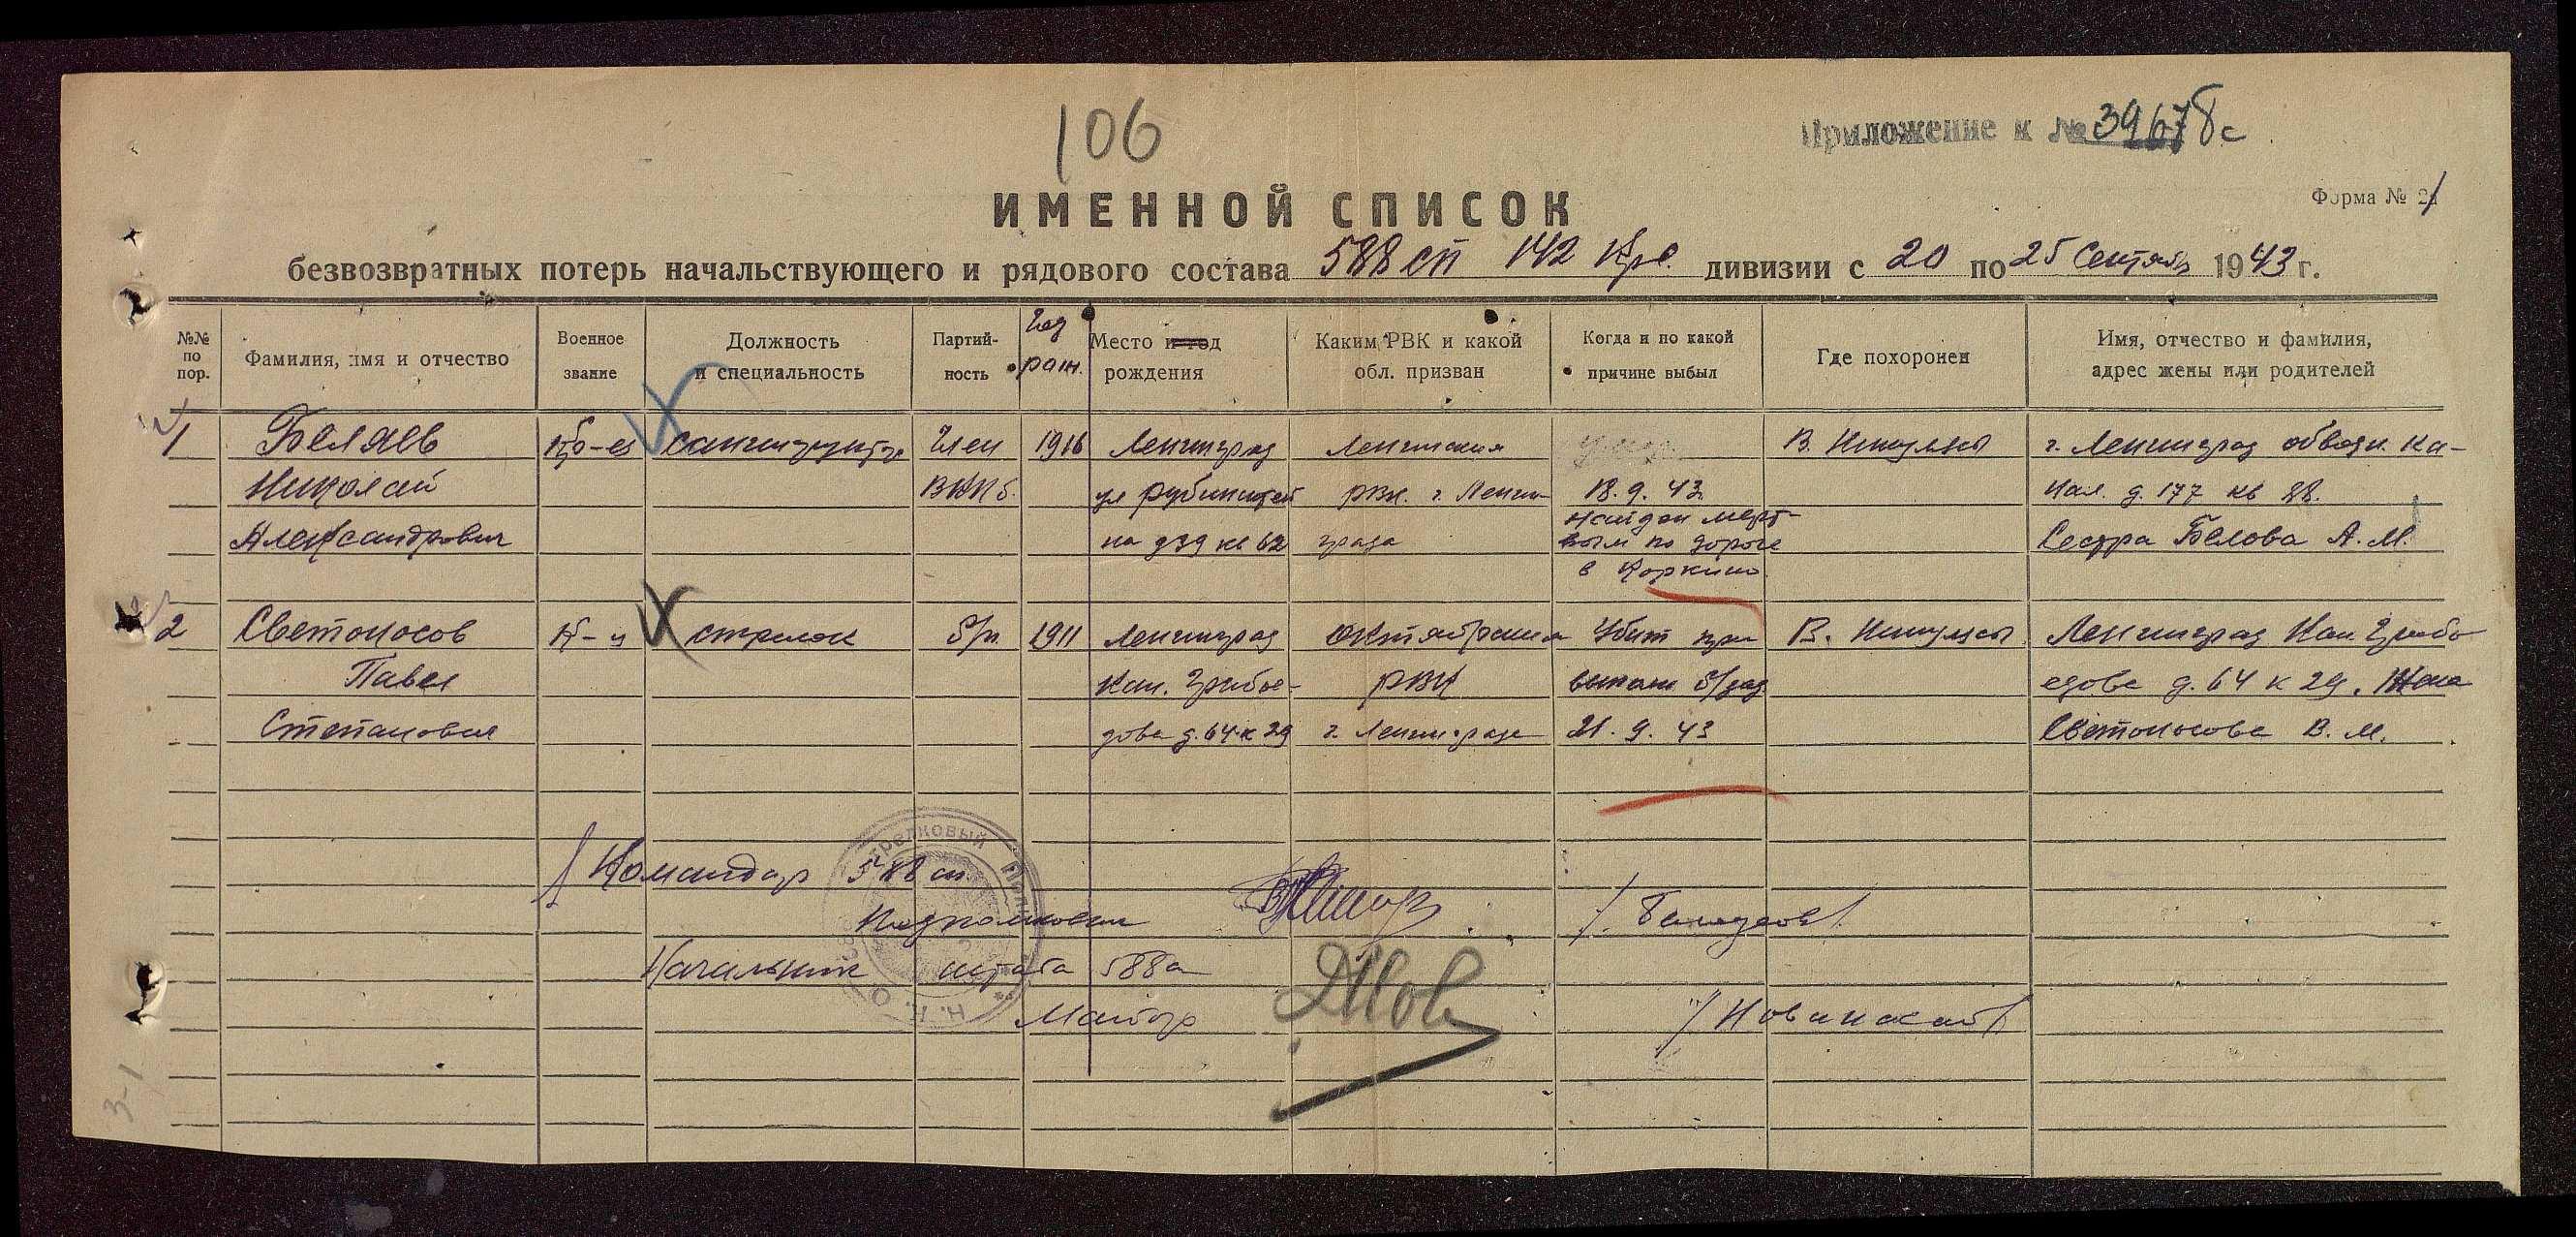 106
Приложение к № 39678с
ИМЕННОЙ СПИСОК
Форма № 2
безвозвратных потерь начальствующего и рядового состава 588 сп 142 Кр. дивизии с 20 по 25 Сентябр 1943 г.
№№ по пор.
Фамилия, имя и отчество
Военное звание
Должность и специальность
Партий-ность
Год рожд.
Место и год рождения
Каким РВК и какой обл. призван
Когда и по какой причине выбыл
Где похоронен
Имя, отчество и фамилия, адрес жены или родителей
1 Беляев санинструктор Член 1916 Ленинград Ленинским В. Никулясы г. Ленинград обводн. Ка-
Николай ВКПб. ул Рубинштей РВК. г. Ленин- 18.9.43. нал. д. 177 кв 88.
Александрович на д 39 кв 62 града Найден мерт-
вым по дороге Сестра Белова А.М.
в Коркино
2 Светоносов стрелок б/п 1911 Ленинград Октябрьским Убит при В. Никулясы Ленинград Кан. Грибо
Павел Кан. Грибое- РВК выполн б/зад едова д. 64 к 29. Жена
Степанович дова д. 64 к 29 г. Ленинграда 21.9.43 Светоносова В.М.
Командир 588 сп.
Подполковник
Начальник штаба 588 сп
Майор
стрелковый
Н. К. О.
3-1